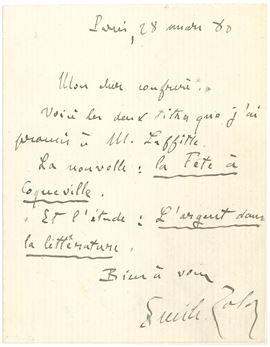 Paris, 28 mars 80
Mon cher confrère,
Voici les deux titres que j'ai
promis à M. Laffitte.
La nouvelle : la Fête à
Coqueville.
Et l'étude : L'argent dans
la littérature.
Bien à vous
Emile Zola